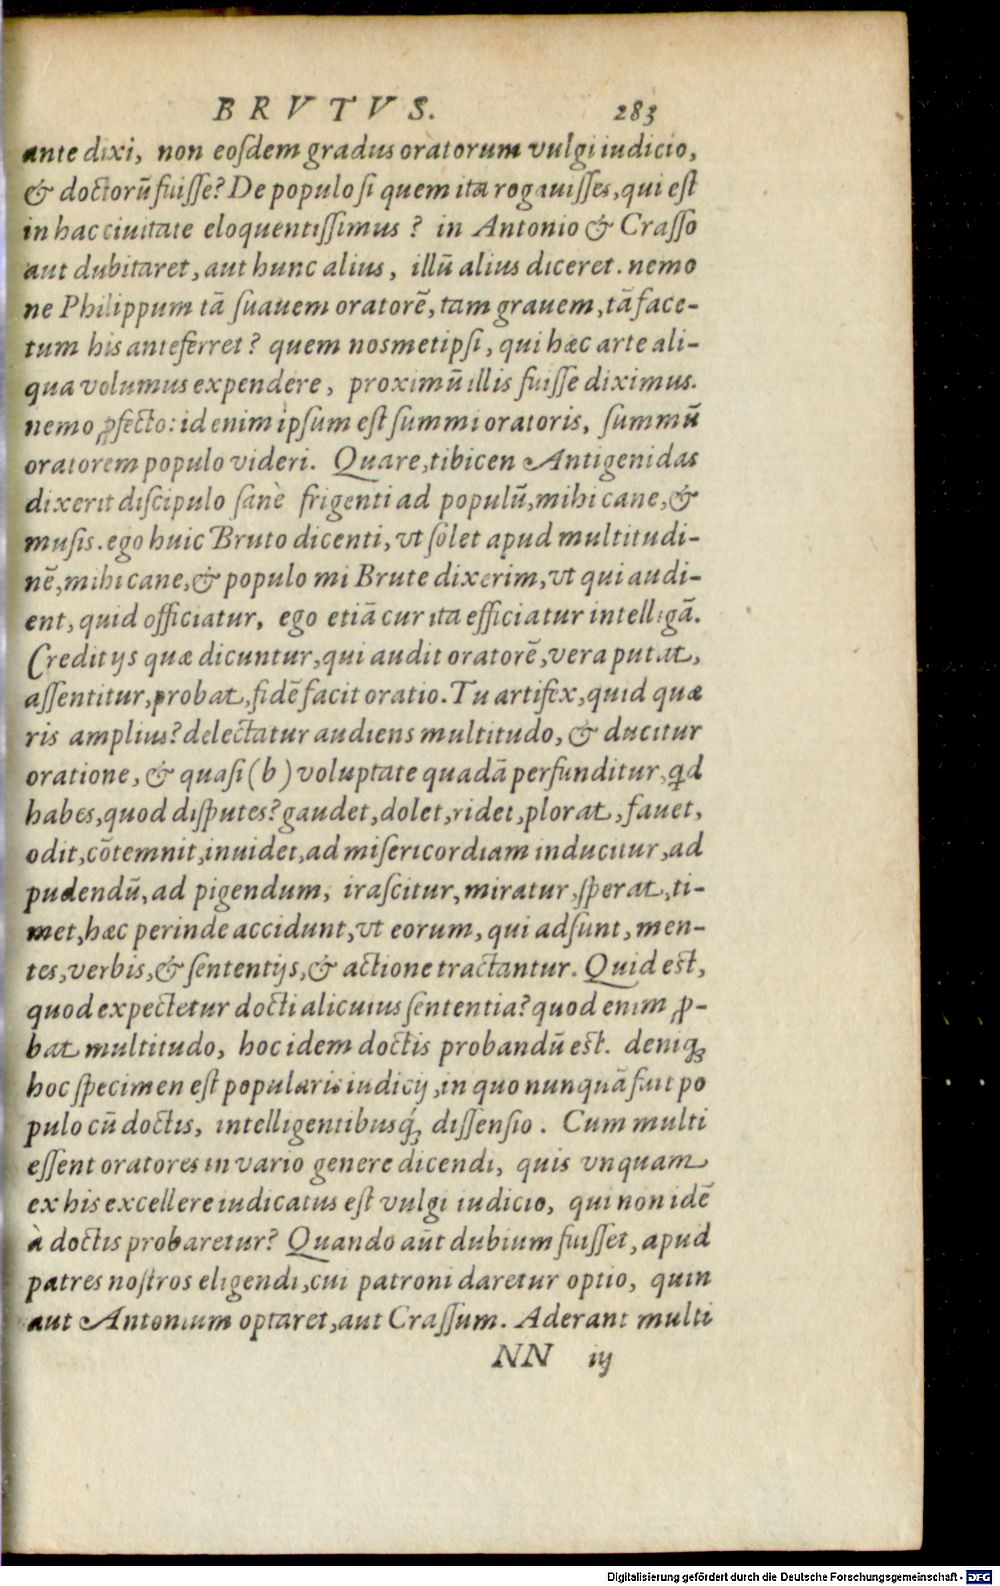 BRVTVS. 283
ante dixi, non eosdem gradus oratorum vulgi iudicio,
& doctorū fuisse? De populo si quem ita rogauisses, qui est
in hac ciuitate eloquentissimus? in Antonio & Crasso
aut dubitaret, aut hunc alius, illū alius diceret. nemo
ne Philippum tā suauem oratorē, tam grauem, tā face-
tum his anteferret? quem nosmetipsi, qui hæc arte ali-
qua volumus expendere, proximū illis fuisse diximus.
nemo ꝓfecto: id enim ipsum est summi oratoris, summū
oratorem populo videri. Quare, tibicen Antigenidas
dixerit discipulo sanè frigenti ad populū, mihi cane, &
musis. ego huic Bruto dicenti, vt solet apud multitudi-
nē, mihi cane, & populo mi Brute dixerim, vt qui audi-
ent, quid officiatur, ego etiā cur ita efficiatur intelligā.
Credit ijs quæ dicuntur, qui audit oratorē, vera putat,
assentitur, probat, fidē facit oratio. Tu artifex, quid quæ
ris amplius? delectatur audiens multitudo, & ducitur
oratione, & quasi (b) voluptate quadā perfunditur, qd
habes, quod disputes? gaudet, dolet, ridet, plorat, fauet,
odit, cōtemnit, inuidet, ad misericordiam inducitur, ad
pudendū, ad pigendum, irascitur, miratur, sperat, ti-
met, hæc perinde accidunt, vt eorum, qui adsunt, men-
tes, verbis, & sententijs, & actione tractantur. Quid est,
quod expectetur docti alicuius sententia? quod enim ꝓ-
bat multitudo, hoc idem doctis probandū est. deniqꝫ
hoc specimen est popularis iudicij, in quo nunquā fuit po
pulo cū doctis, intelligentibusqꝫ́ dissensio. Cum multi
essent oratores in vario genere dicendi, quis vnquam
ex his excellere iudicatus est vulgi iudicio, qui non idē
à doctis probaretur? Quando aūt dubium fuisset, apud
patres nostros eligendi, cui patroni daretur optio, quin
aut Antonium optaret, aut Crassum. Aderant multi
NN iij
Digitalisierung gefördert durch die Deutsche Forschungsgemeinschaft - DFG